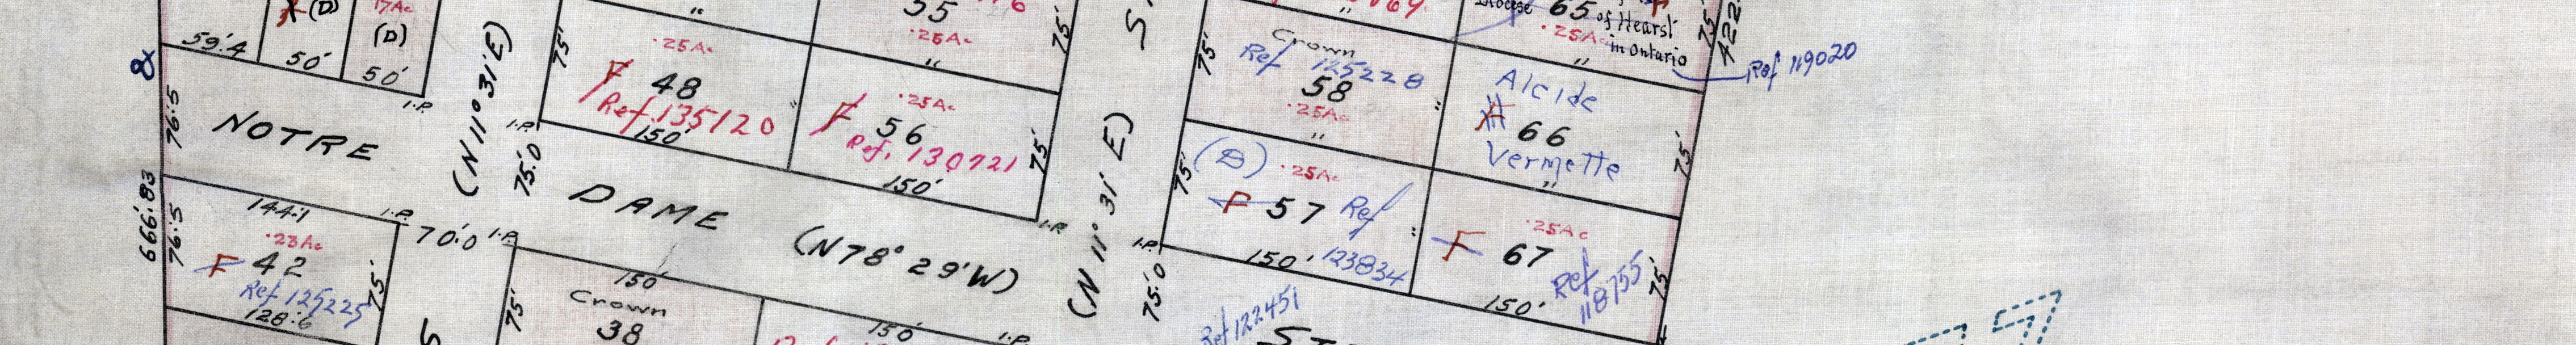 (D)
17Ac
(D)
59.4
50'
50'
I.P.
&
76.5
NOTRE
(N 11° 31' E)
75'
.25Ac
F 48
Ref. 135120
150'
I.P.
75.0
55
.25Ac
75'
.25Ac
F 56
Ref. 130721
150'
75'
I.P.
DAME
(N 78° 29' W)
666.83
76.5
144.1
I.P.
.23Ac
F 42
Ref 125225
75'
128.6
70.0
I.P.
75'
150'
Crown
38
150'
I.P.
S
(N 11° 31' E)
75'
Crown
Ref 125228
58
.25Ac
75'
(D)
.25Ac
F 57 Ref
123834
150'
I.P.
75.0
Ref 122451
ST
Diocese 65 of Hearst
.25Ac
in Ontario
75'
422
Ref 119020
Alcide
66
Vermette
75'
.25Ac
F 67
Ref
118755
150'
75'